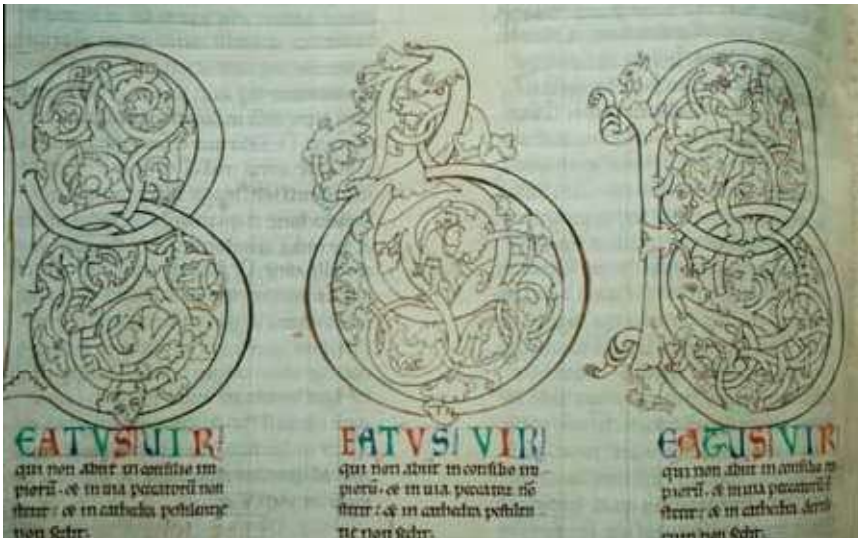 B
EATVS UIR
qui non abiit in consilio im
piorū. & in uia peccatorū non
stetit: & in cathedra pestilentie
non sedit.
b
EATVS VIR
qui non abiit in consilio im
piorū. & in uia peccatoꝝ nō
stetit: & in cathedra pestilen
tie non sedit.
B
EATUS VIR
qui non abiit in consilio
piorū. & in uia peccatorū
stetit: & in cathedra
rum non sedit.